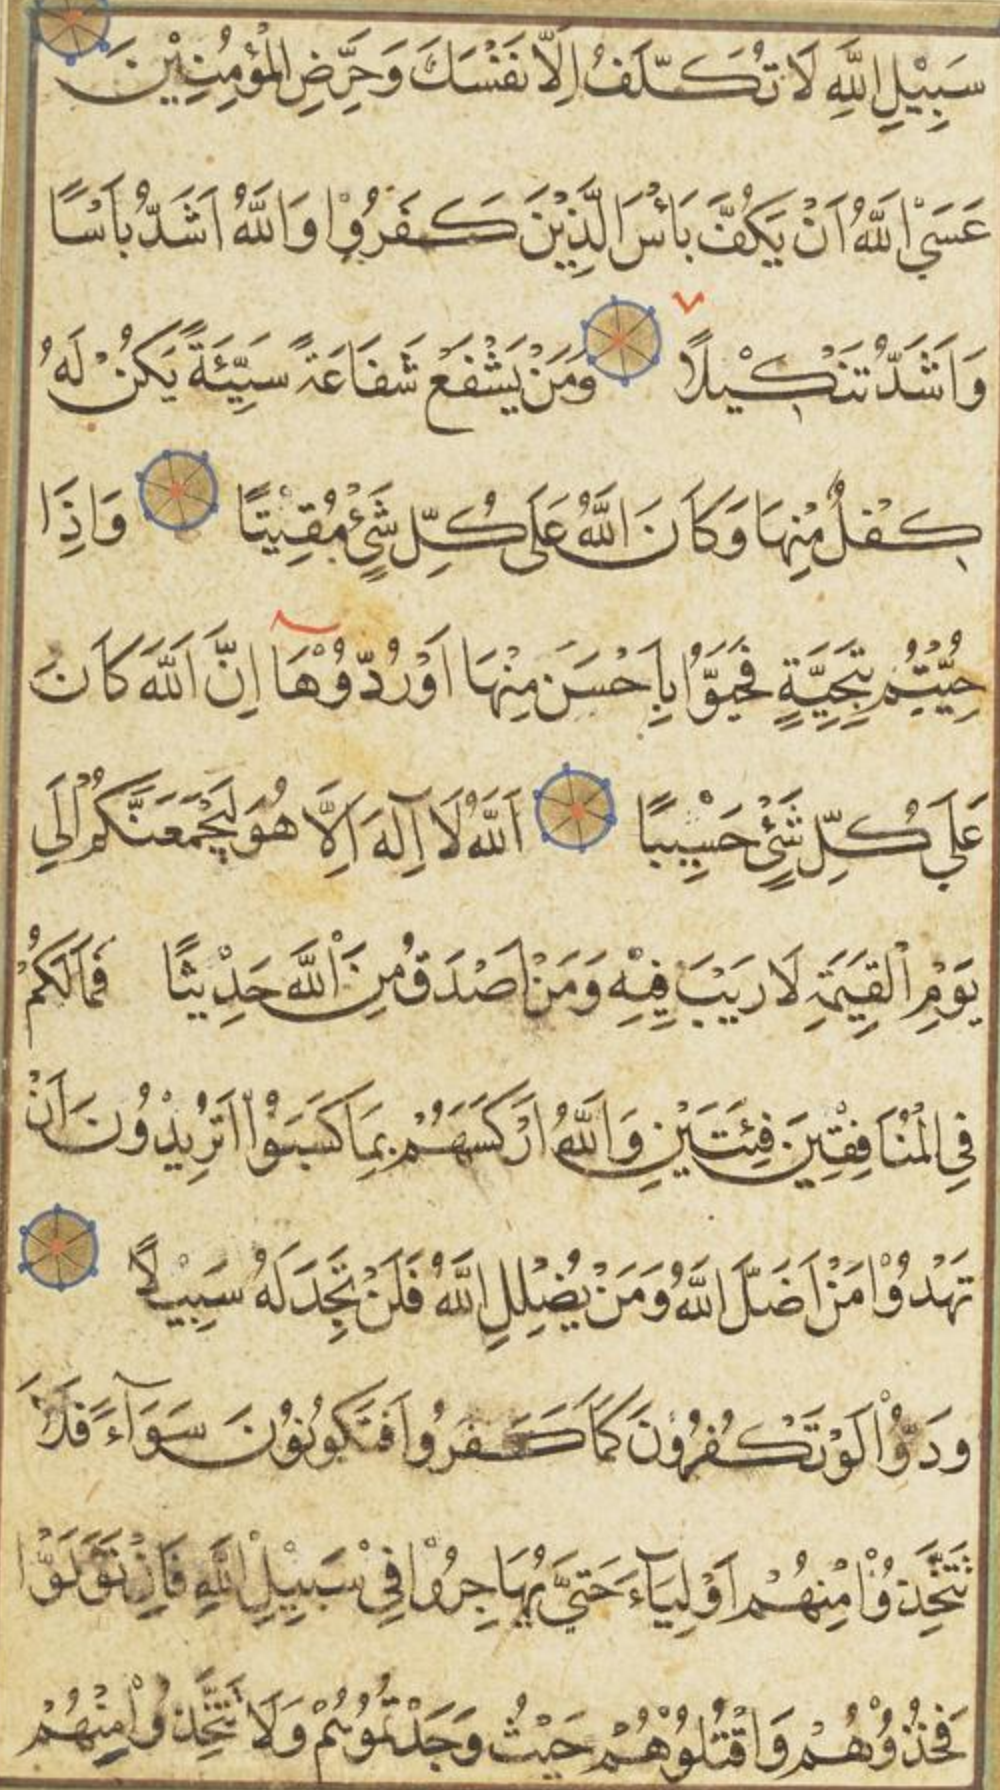 سَبِيْلِ اللَّهِ لَا تُكَلَّفُ اِلَّا نَفْسَكَ وَحَرِّضِ الْمُؤْمِنِيْنَ
عَسَىْ اللَّهُ اَنْ يَكُفَّ بَأْسَ الَّذِيْنَ كَفَرُوْا وَاللَّهُ اَشَدُّ بَاْسًا
وَاَشَدُّ تَنْكِيْلًا وَمَنْ يَشْفَعْ شَفَاعَةً سَيِّئَةً يَكُنْ لَهُ
كِفْلٌ مِنْهَا وَكَانَ اللَّهُ عَلَى كُلِّ شَيْءٍ مُقِيْتًا وَاِذَا
حُيِّيْتُمْ بِتَحِيَّةٍ فَحَيُّوْا بِاَحْسَنَ مِنْهَا اَوْ رُدُّوْهَا اِنَّ اللَّهَ كَانَ
عَلَى كُلِّ شَيْءٍ حَسِيْبًا اَللَّهُ لَا اِلٓهَ اِلَّا هُوَ لَيَجْمَعَنَّكُمْ اِلَى
يَوْمِ الْقِيَمَةِ لَا رَيْبَ فِيْهِ وَمَنْ اَصْدَقُ مِنَ اللَّهِ حَدِيْثًا فَمَا لَكُمْ
فِي الْمُنَافِقِيْنَ فِئَتَيْنِ وَاللَّهُ اَرْكَسَهُمْ بِمَا كَسَبُوْا اَتُرِيْدُوْنَ اَنْ
تَهْدُوْا مَنْ اَضَلَّ اللَّهُ وَمَنْ يُضْلِلِ اللَّهُ فَلَنْ تَجِدَ لَهُ سَبِيْلًا
وَدُّوْا لَوْ تَكْفُرُوْنَ كَمَا كَفَرُوا فَتَكُوْنُوْنَ سَوَآءً فَلَا
تَتَّخِذُوْا مِنْهُمْ اَوْلِيَآءَ حَتَّى يُهَاجِرُوْا فِيْ سَبِيْلِ اللَّهِ فَاِنْ تَوَلَّوْا
فَخُذُوْهُمْ وَاقْتُلُوْهُمْ حَيْثُ وَجَدْتُمُوْهُمْ وَلَا تَتَّخِذُوْا مِنْهُمْ